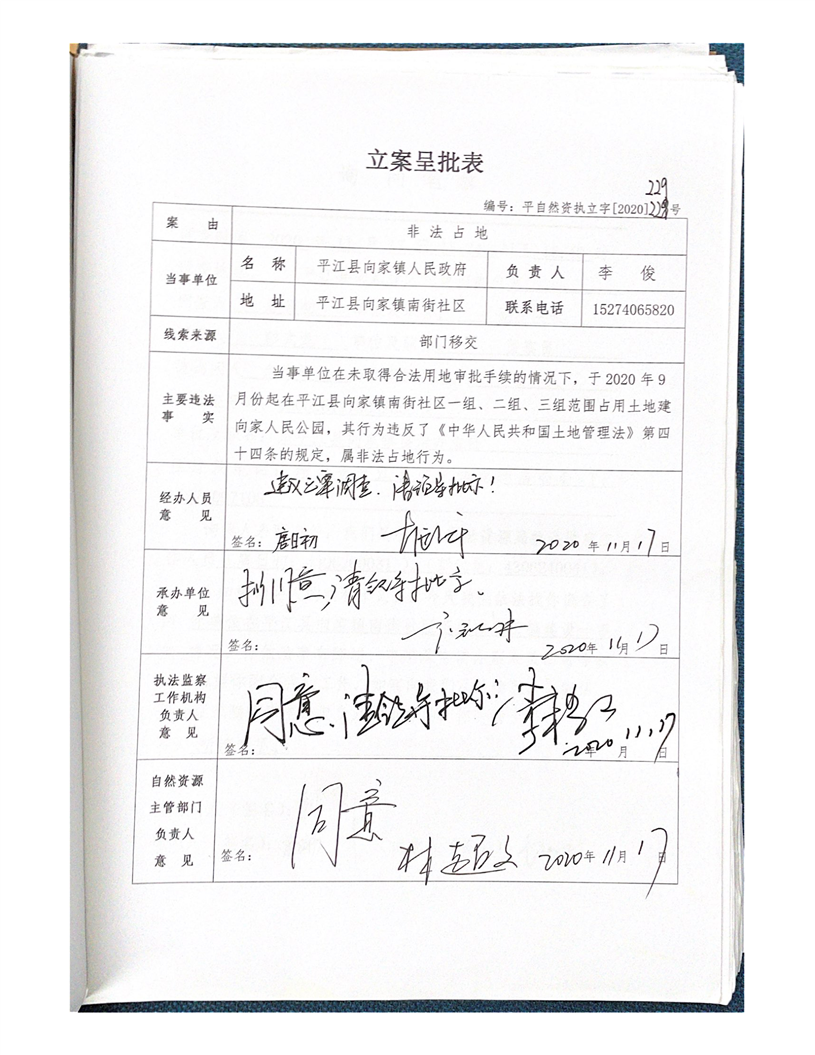 立案呈批表
229
编号：平自然资执立字[2020]229号
案 由 非法占地
当事单位 名 称 平江县向家镇人民政府 负 责 人 李 俊
地 址 平江县向家镇南街社区 联系电话 15274065820
线索来源 部门移交
主要违法
事 实
当事单位在未取得合法用地审批手续的情况下，于2020年9
月份起在平江县向家镇南街社区一组、二组、三组范围占用土地建
向家人民公园，其行为违反了《中华人民共和国土地管理法》第四
十四条的规定，属非法占地行为。
经办人员
意 见
建议立案调查，请领导批示！
签名： 2020年11月17日
承办单位
意 见
拟同意，请领导批示。
签名： 2020年11月17日
执法监察
工作机构
负责人
意 见
同意，请领导批示
签名： 2020年11月17日
自然资源
主管部门
负责人
意 见
同意
签名： 2020年11月17日